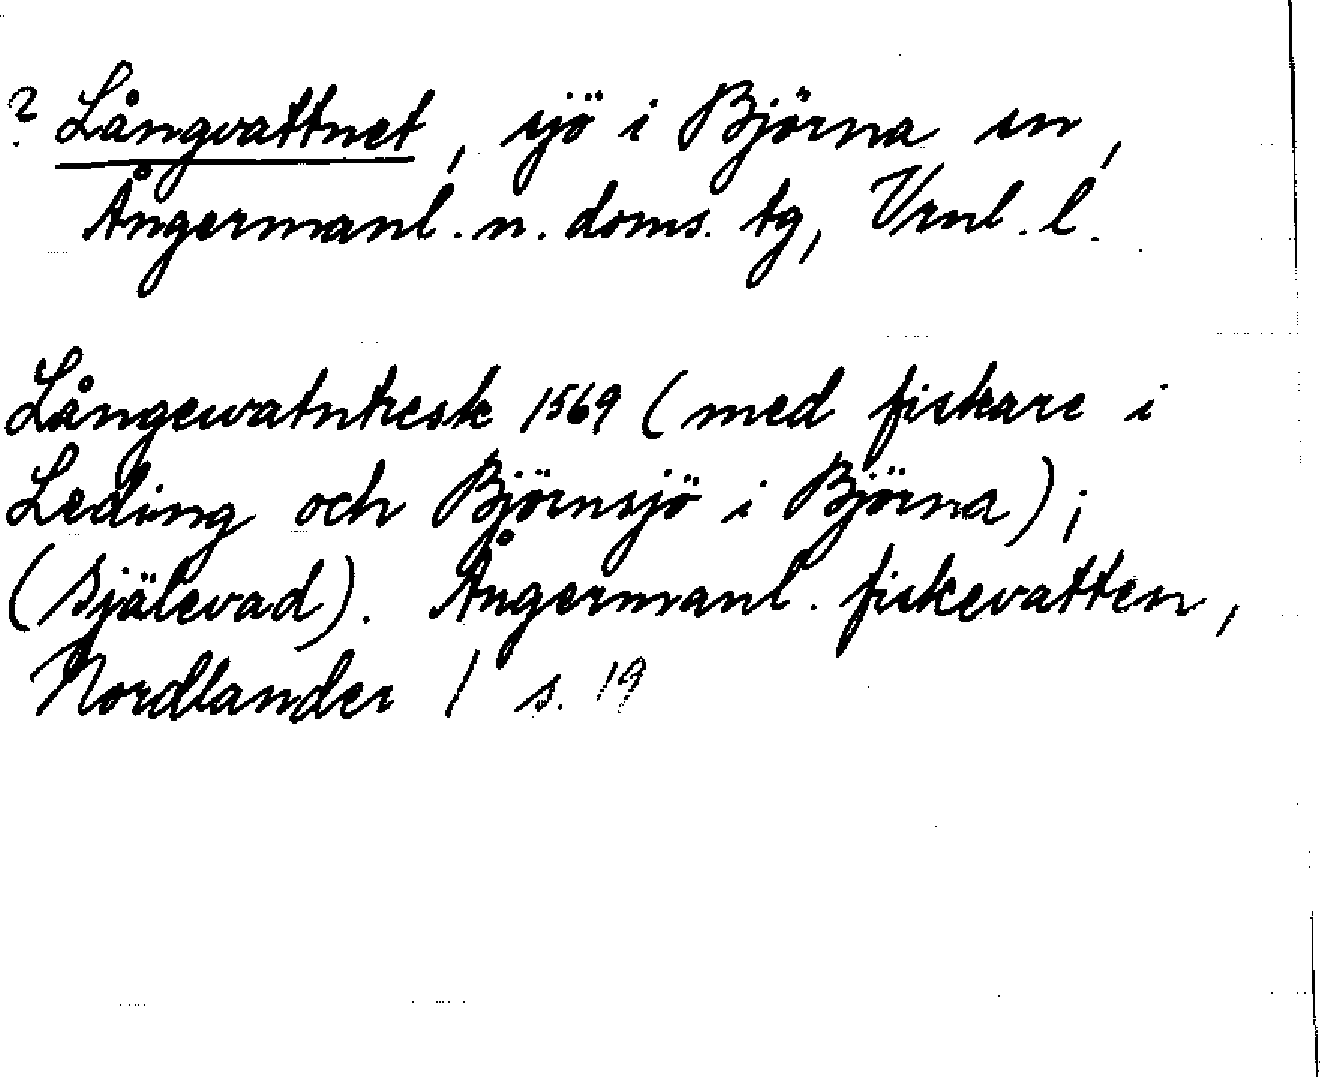 ? Långvattnet, sjö i Björna sn,
Ångermanl. n. doms. tg, Vrnl. l.
Långewatnträsk 1569 (med fiskare i
Leding och Björnsjö i Björna);
(Själevad). Ångermanl. fiskevatten,
Nordlander 1 s. 19